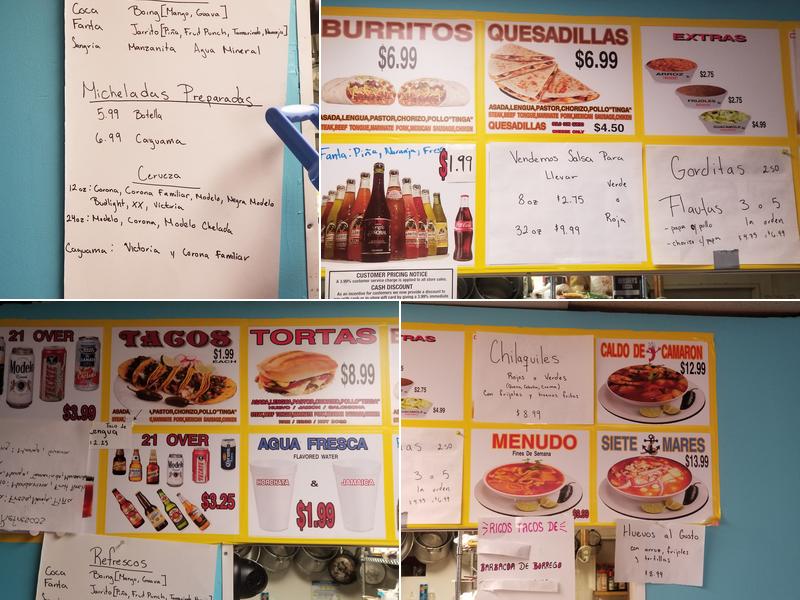 Coca Boing [Mango, Guava]
Fanta Jarrito [Piña, Frut Punch, Tamarindo, Naranja]
Sangria Manzanita Agua Mineral
Micheladas Preparadas
5.99 Botella
6.99 Caguama
Cerveza
12oz: Corona, Corona Familiar, Modelo, Negra Modelo
Budlight, XX, Victoria
24oz: Modelo, Corona, Modelo Chelada
Caguama: Victoria y Corona Familiar
BURRITOS
$6.99
ASADA,LENGUA,PASTOR,CHORIZO,POLLO"TINGA"
STEAK,BEEF TONGUE,MARINATE PORK,MEXICAN SAUSAGE,CHICKEN
QUESADILLAS
$6.99
ASADA,LENGUA,PASTOR,CHORIZO,POLLO"TINGA"
STEAK,BEEF TONGUE,MARINATE PORK,MEXICAN SAUSAGE,CHICKEN
QUESADILLAS
CHEESE ONLY
$4.50
EXTRAS
ARROZ
$2.75
FRIJOLES
$2.75
$4.99
Fanta: Piña, Naranja, Fres
$1.99
CUSTOMER PRICING NOTICE
A 3.99% customer service charge is applied to all store sales.
CASH DISCOUNT
As an incentive for customers we now provide a discount to
Vendemos Salsa Para
Llevar
Verde
8oz $2.75 o
Roja
32oz $9.99
Gorditas 2.50
Flautas 3 o 5
- papa o pollo la orden
- chorizo c/ papa
21 OVER
Modelo
$3.99
TACOS
$1.99
EACH
ASADA, PASTOR,CHORIZO,POLLO"TINGA"
TORTAS
$8.99
ASADA,LENGUA,PASTOR,CHORIZO,POLLO"TINGA"
HUEVO / JAMON / SALCHICHA
EGG / HAM / HOT DOGS
Taco de
Lengua
21 OVER
Modelo
$3.25
AGUA FRESCA
FLAVORED WATER
HORCHATA & JAMAICA
$1.99
Refrescos
Refrescos
Coca Boing [Mango, Guava]
Fanta Jarrito [Piña, Frut Punch,
RAS
$2.75
$4.99
Chilaquiles
Rojos o Verdes
(Queso, Cebolla, Crema)
Con frijoles y huevos fritos
$8.99
CALDO DE CAMARON
$12.99
as 2.50
3 o 5
la orden
MENUDO
Fines De Semana
SIETE MARES
$13.99
RICOS TACOS DE
BARBACOA DE BORREGO
Huevos al Gusto
con arroz, frijoles
y tortillas
$8.99